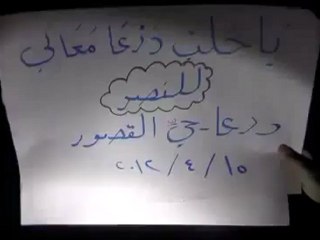 يا حلب دَرْعَا مَعَاكي
للنصر
درعا-حيّ القصور
٢٠١٢/٤/١٥